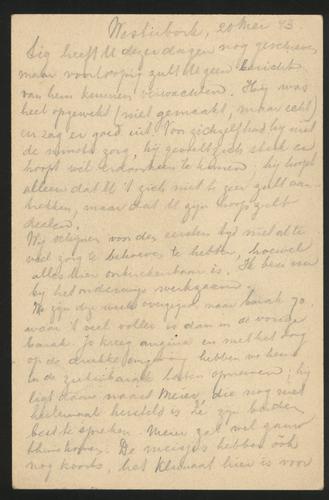 Westerbork, 20 Mei 43
Sig heeft U dezer dagen nog geschreven,
maar voorloopig zult U geen bericht
van hem kunnen verwachten. Hij was
heel opgewekt (niet gemaakt, maar echt)
en zag er goed uit. Voor zichzelf had hij niet
de minste zorg, hij voelt zich sterk en
hoopt wel erdoorheen te komen, hij hoopt
alleen dat U 't zich niet te zeer zult aan-
trekken, maar dat U zijn hoop zult
deelen.
Wij schijnen voor den eersten tijd niet al te
veel zorg te behoeven te hebben, hoewel
alles hier onberekenbaar is. Ik ben
bij het onderwijs werkzaam.
We zijn dezer week overgegaan naar barak 70,
waar 't veel voller is dan in de vorige
barak. Jo kreeg angina en met het oog
op de drukke omgeving hebben we hem
in de ziekenbarak laten opnemen; hij
ligt daar naast Meier, die nog niet
heelemaal hersteld is. Ze zijn beiden
best te spreken. Meier zal wel gauw
thuiskomen. De meisjes hebben óók
nog koorts, het klimaat hier is voor